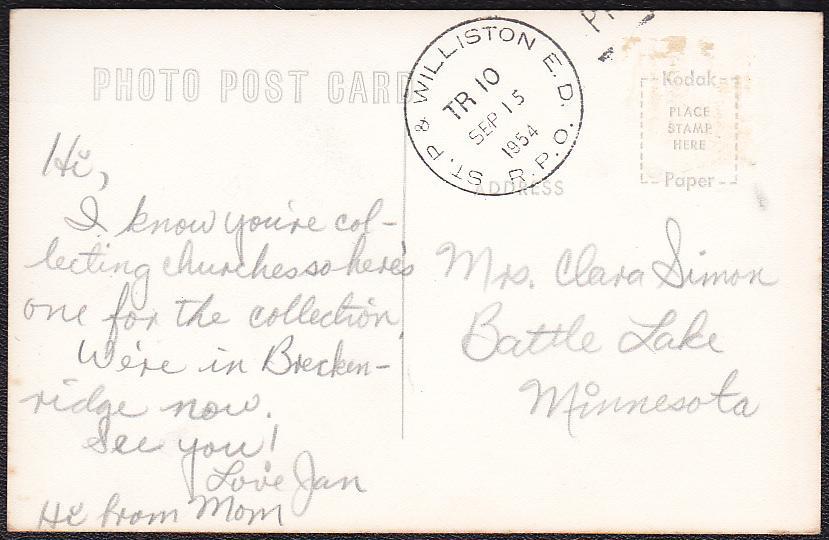 PHOTO POST CARD
Hi,
I know you're col-
lecting churches so here's
one for the collection.
We're in Brecken-
ridge now.
See you!
Love Jan
Hi from Mom
ST. P & WILLISTON E.D.
TR 10
SEP 15
1954
R.P.O.
Kodak
PLACE
STAMP
HERE
Paper
ADDRESS
Mrs. Clara Simon
Battle Lake
Minnesota